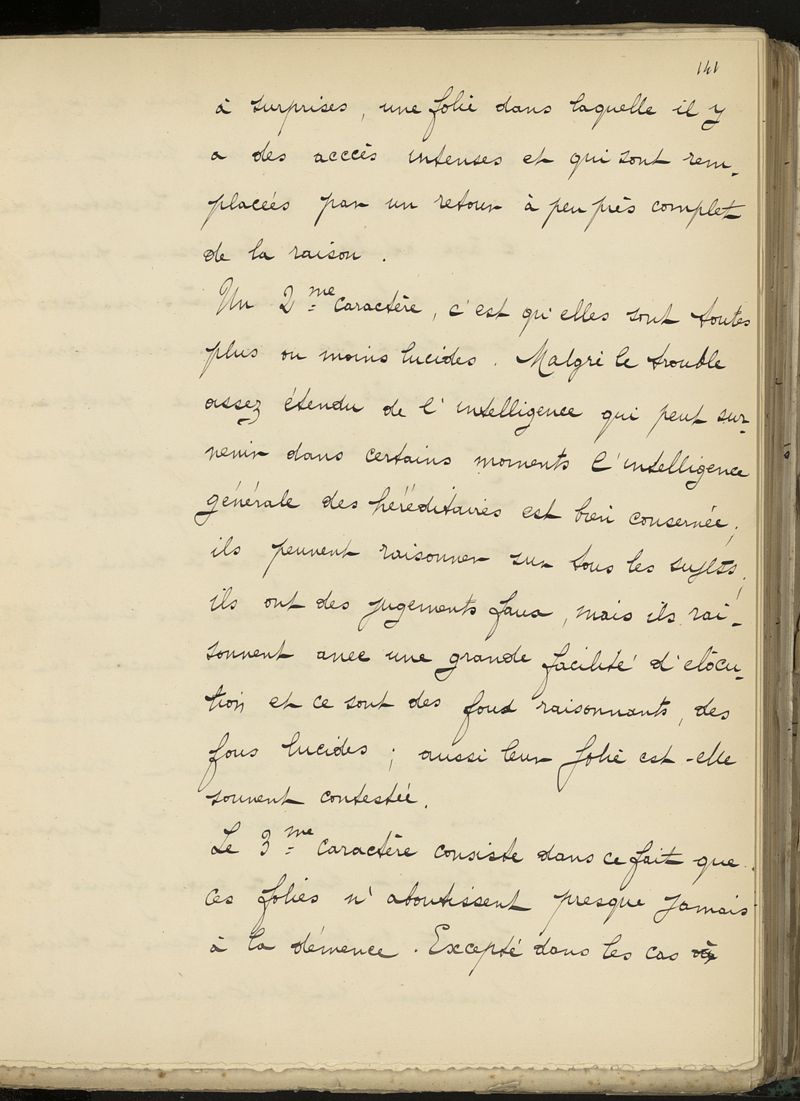 141
à surprises, une folie dans laquelle il y
a des acccès intenses et qui sont rem-
placéés par un retour à peu près complet
de la raison.
Un 2me caractère, c'est qu'elles sont toutes
plus ou moins lucides. Malgré le trouble
assez étendu de l'intelligence qui peut sur-
venir dans certains moments l'intelligence
générale des héréditaires est bien conservée;
ils peuvent raisonner sur tous les sujets;
ils ont des jugements faux, mais ils rai-
sonnent avec une grande facilité d'élocu-
tion et ce sont des fous raisonnants, des
fous lucides; aussi leur folie est-elle
souvent contestée.
Le 3me caractère consiste dans ce fait que
ces folies n'aboutissent presque jamais
à la démence. Excepté dans les cas